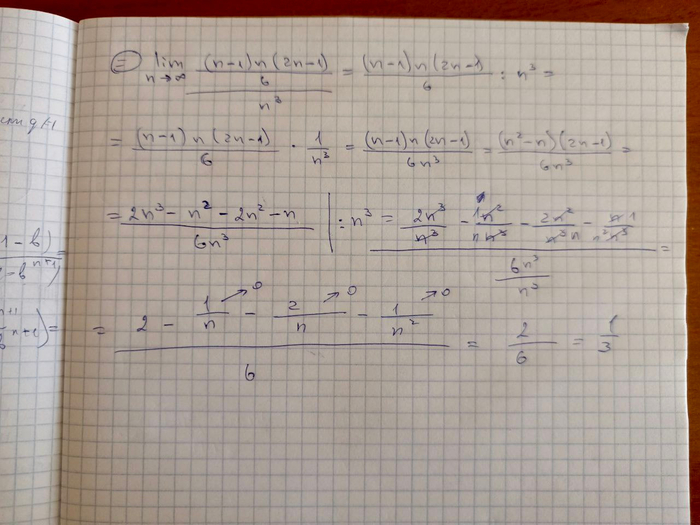 = lim n→∞ ((n-1)n(2n-1)/6)/n³ = (n-1)n(2n-1)/6 : n³ =
= (n-1)n(2n-1)/6 · 1/n³ = (n-1)n(2n-1)/6n³ = (n²-n)(2n-1)/6n³ =
= (2n³ - n² - 2n² - n)/6n³ | : n³ = (2n³/n³ - 1n²/n n³ - 2n²/n³ n - n 1/n² n³)/(6n³/n³) =
= (2 - 1/n →0 - 2/n →0 - 1/n² →0)/6 = 2/6 = 1/3
1-b)
-bⁿ⁺¹) =
n+1
n+1) =